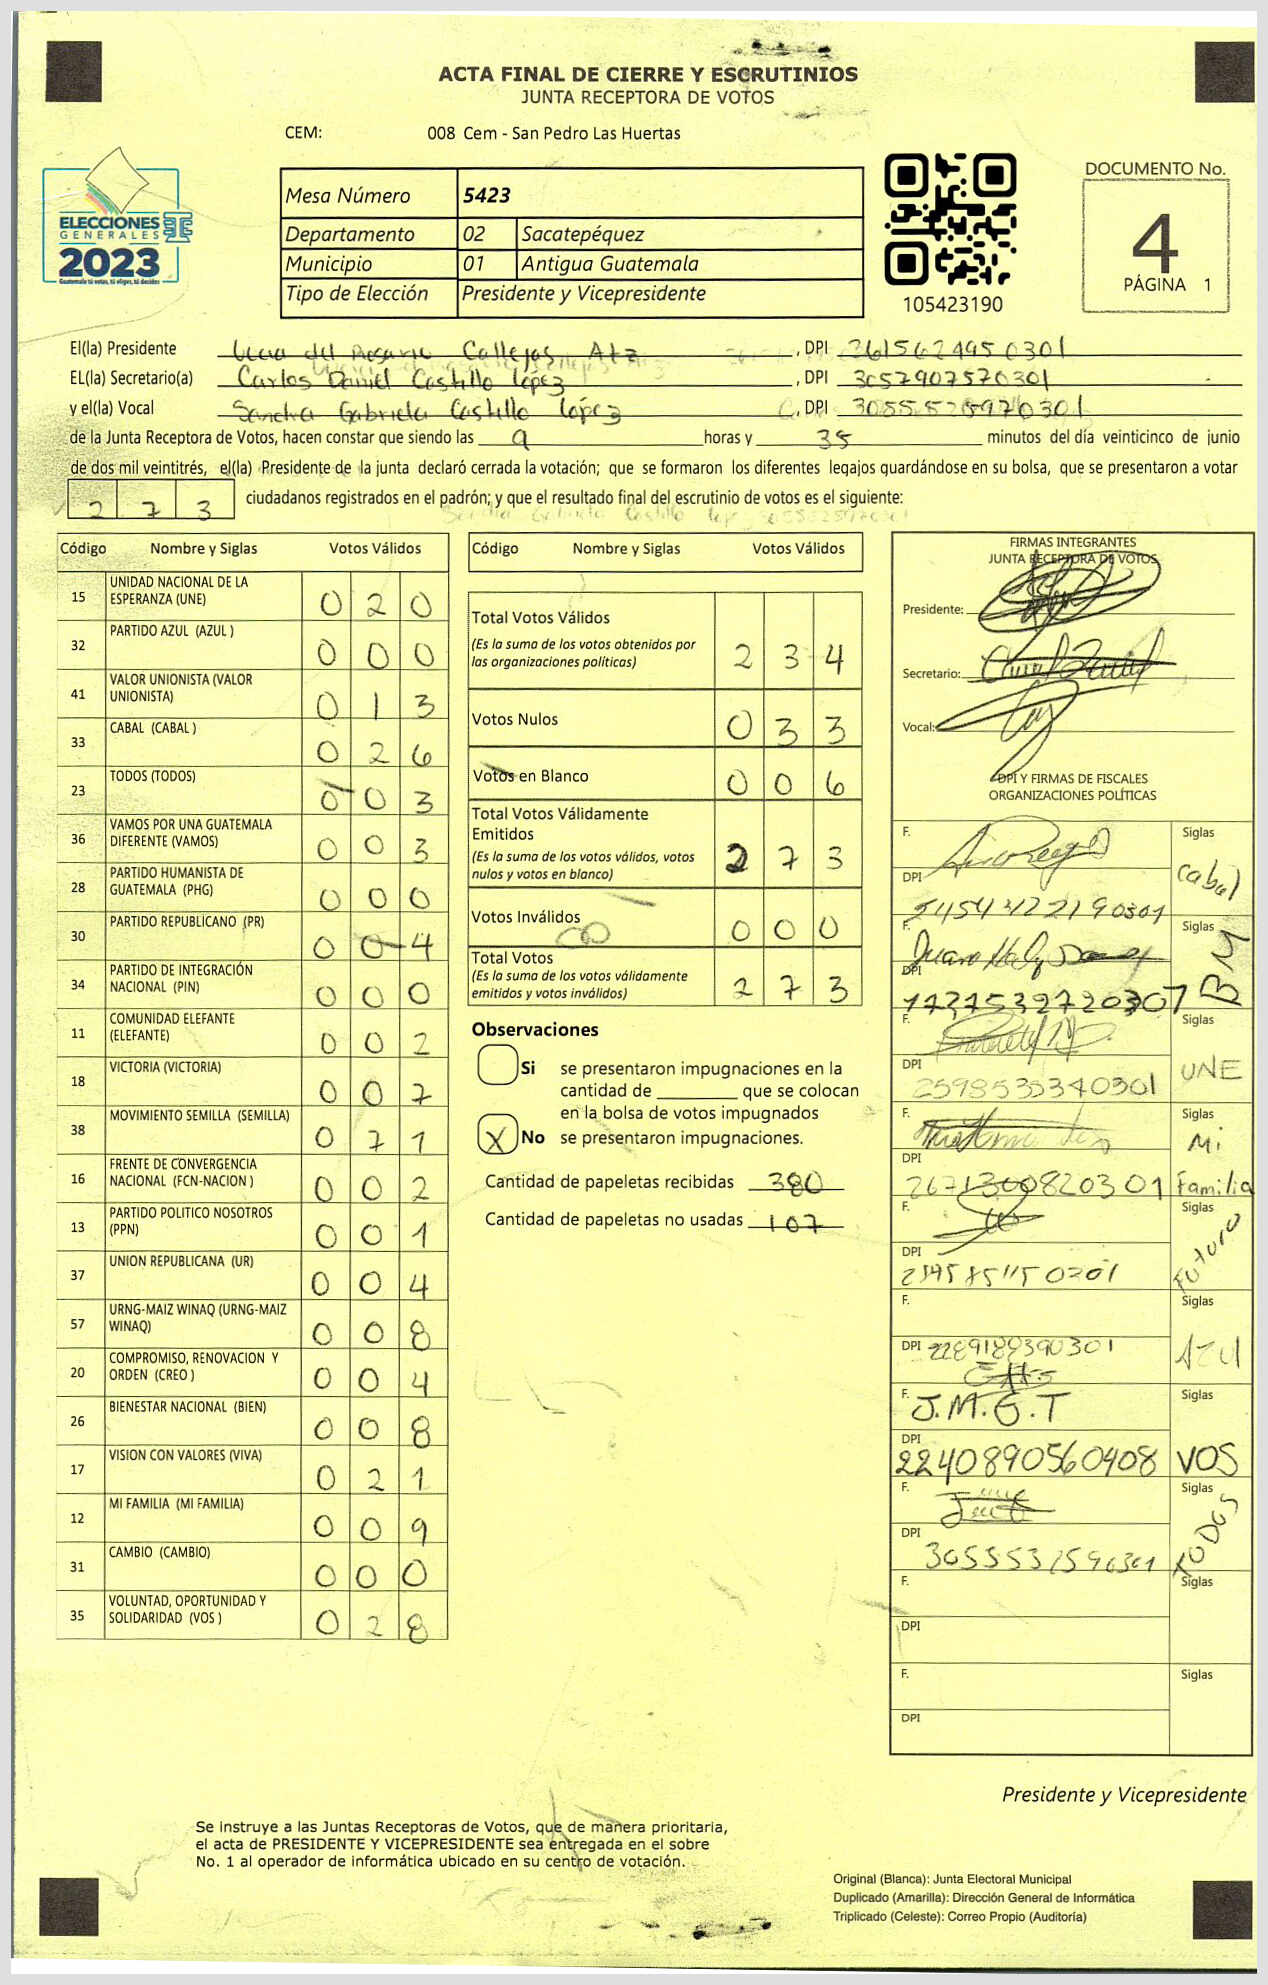 ACTA FINAL DE CIERRE Y ESCRUTINIOS
JUNTA RECEPTORA DE VOTOS
CEM: 008 Cem - San Pedro Las Huertas
ELECCIONES
GENERALES
2023
Guatemala tú votas, tú eliges, tú decides
Mesa Número 5423
Departamento 02 Sacatepéquez
Municipio 01 Antigua Guatemala
Tipo de Elección Presidente y Vicepresidente
105423190
DOCUMENTO No.
4
PÁGINA 1
El(la) Presidente Lucia del Rosario Callejas Atz, DPI 2615624950301
EL(la) Secretario(a) Carlos Daniel Castillo López, DPI 3057907570301
y el(la) Vocal Sandra Gabriela Castillo López, DPI 3055525970301
de la Junta Receptora de Votos, hacen constar que siendo las 9 horas y 35 minutos del día veinticinco de junio
de dos mil veintitrés, el(la) Presidente de la junta declaró cerrada la votación; que se formaron los diferentes legajos guardándose en su bolsa, que se presentaron a votar
2 7 3 ciudadanos registrados en el padrón; y que el resultado final del escrutinio de votos es el siguiente:
Código Nombre y Siglas Votos Válidos
15 UNIDAD NACIONAL DE LA ESPERANZA (UNE) 0 2 0
32 PARTIDO AZUL (AZUL ) 0 0 0
41 VALOR UNIONISTA (VALOR UNIONISTA) 0 1 3
33 CABAL (CABAL ) 0 2 6
23 TODOS (TODOS) 0 0 3
36 VAMOS POR UNA GUATEMALA DIFERENTE (VAMOS) 0 0 3
28 PARTIDO HUMANISTA DE GUATEMALA (PHG) 0 0 0
30 PARTIDO REPUBLICANO (PR) 0 0 4
34 PARTIDO DE INTEGRACIÓN NACIONAL (PIN) 0 0 0
11 COMUNIDAD ELEFANTE (ELEFANTE) 0 0 2
18 VICTORIA (VICTORIA) 0 0 7
38 MOVIMIENTO SEMILLA (SEMILLA) 0 7 1
16 FRENTE DE CONVERGENCIA NACIONAL (FCN-NACION ) 0 0 2
13 PARTIDO POLITICO NOSOTROS (PPN) 0 0 1
37 UNION REPUBLICANA (UR) 0 0 4
57 URNG-MAIZ WINAQ (URNG-MAIZ WINAQ) 0 0 8
20 COMPROMISO, RENOVACION Y ORDEN (CREO ) 0 0 4
26 BIENESTAR NACIONAL (BIEN) 0 0 8
17 VISION CON VALORES (VIVA) 0 2 1
12 MI FAMILIA (MI FAMILIA) 0 0 9
31 CAMBIO (CAMBIO) 0 0 0
35 VOLUNTAD, OPORTUNIDAD Y SOLIDARIDAD (VOS ) 0 2 8
Código Nombre y Siglas Votos Válidos
Total Votos Válidos
(Es la suma de los votos obtenidos por las organizaciones políticas) 2 3 4
Votos Nulos 0 3 3
Votos en Blanco 0 0 6
Total Votos Válidamente Emitidos
(Es la suma de los votos válidos, votos nulos y votos en blanco) 2 7 3
Votos Inválidos 0 0 0
Total Votos
(Es la suma de los votos válidamente emitidos y votos inválidos) 2 7 3
Observaciones
Si se presentaron impugnaciones en la
cantidad de ________ que se colocan
en la bolsa de votos impugnados
X No se presentaron impugnaciones.
Cantidad de papeletas recibidas 380
Cantidad de papeletas no usadas 107
FIRMAS INTEGRANTES
JUNTA RECEPTORA DE VOTOS
Presidente:
Secretario:
Vocal:
DPI Y FIRMAS DE FISCALES
ORGANIZACIONES POLÍTICAS
F. Siglas
DPI Cabal
F. Siglas
DPI BM
F. Siglas
DPI 2598535340301 UNE
F. Siglas
DPI 2671300820301 Mi Familia
F. Siglas
DPI FUTURO
F. Siglas
DPI 2289189390301 AZUl
F. J.M.G.T Siglas
DPI 2240890560408 VOS
F. Siglas
DPI TODOS
F. Siglas
DPI
F. Siglas
DPI
Presidente y Vicepresidente
Se instruye a las Juntas Receptoras de Votos, que de manera prioritaria,
el acta de PRESIDENTE Y VICEPRESIDENTE sea entregada en el sobre
No. 1 al operador de informática ubicado en su centro de votación.
Original (Blanca): Junta Electoral Municipal
Duplicado (Amarilla): Dirección General de Informática
Triplicado (Celeste): Correo Propio (Auditoría)